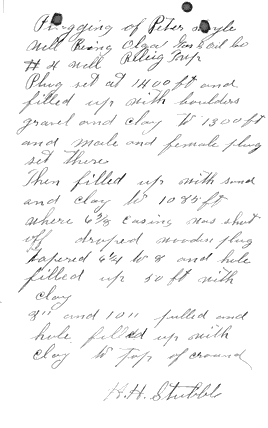 Plugging of Peter Doyle
Well Rising Clear Gas & Oil Co
# 4 well Raleig Twp
Plug set at 1400 ft and
filled up with boulders
gravel and clay to 1300 ft
and male and female plug
set there
Then filled up with sand
and clay to 1085 ft
where 6 5/8 casing was shut
off droped wooden plug
tapered 6 1/4 to 8 and hole
filled up 50 ft with
clay
8" and 10" pulled and
hole filled up with
clay to top of ground
H. H. Stubbs